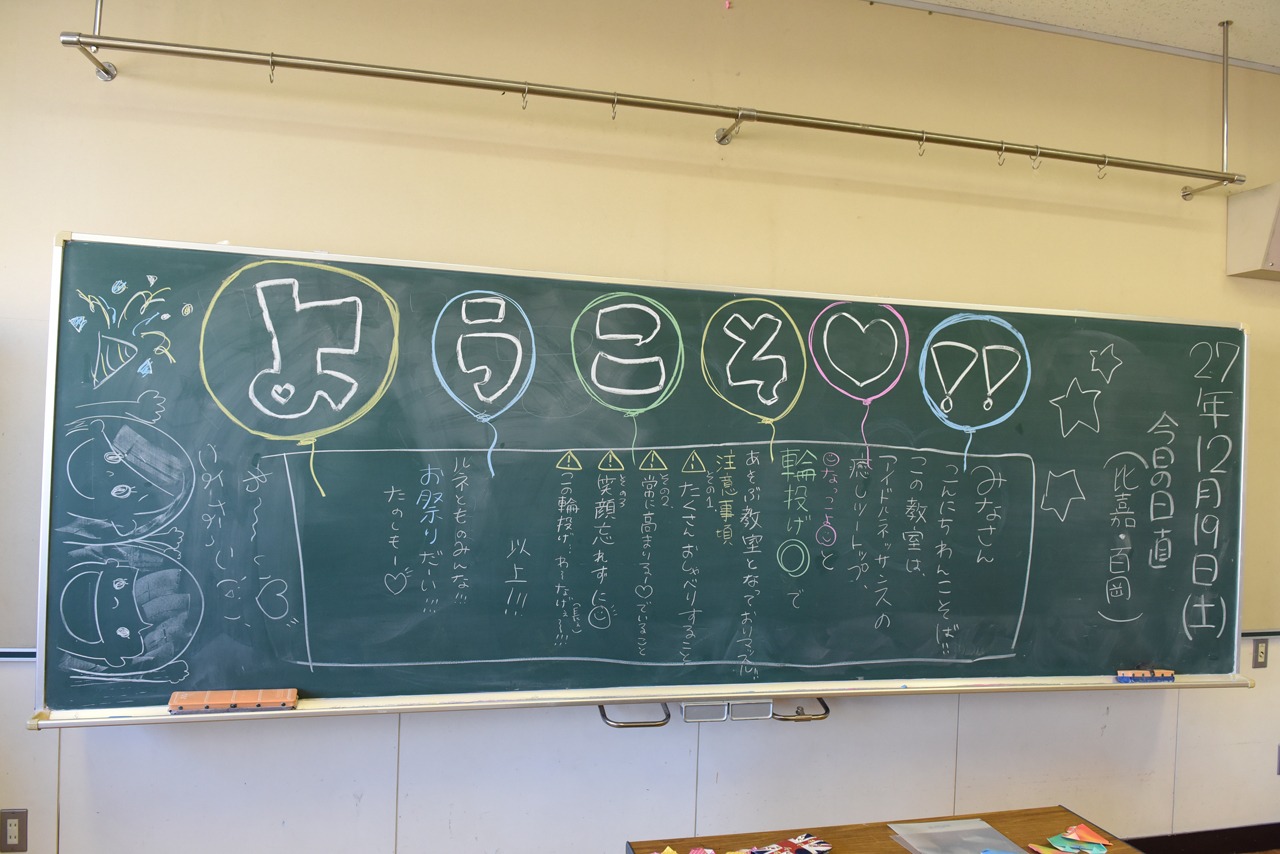 ようこそ♡!!
27年12月19日(土)
今日の日直
(比嘉・百岡)
みなさん
こんにちわんこそば!!
この教室は、
アイドルネッサンスの
癒しツートップ、
なっこよと
輪投げ◎で
あそぶ教室となっておりマッスル!!
注意事項
⚠その1 たくさんおしゃべりすること
⚠その2 常に高まりるー♡でいること
⚠その3 笑顔忘れずに
⚠この輪投げ…わーなげぇー!!!(長い)
以上!!!
ルネとものみんな!!!
お祭りだい!!!
たのしもー♡